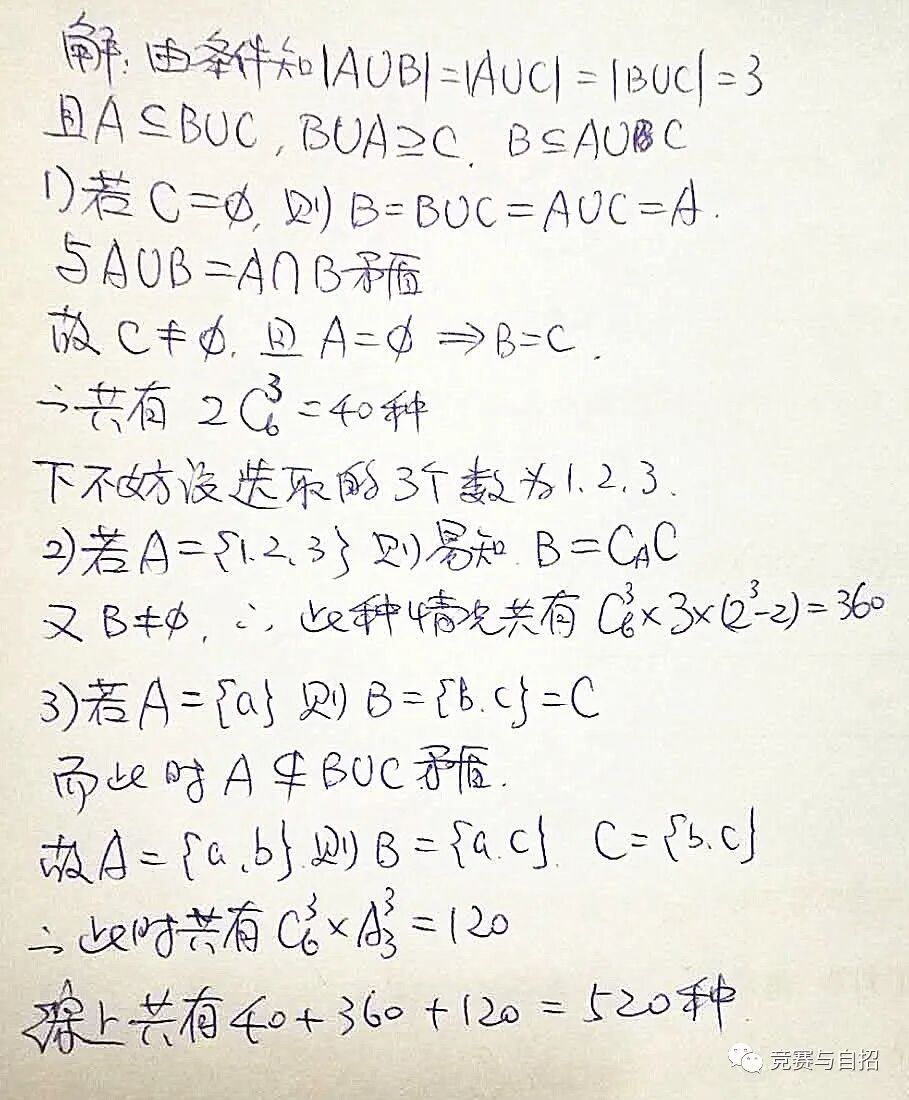 解: 由条件知|A∪B|=|A∪C|=|B∪C|=3
且A⊆B∪C, B∪A⊇C. B⊆A∪C
1)若C=∅, 则B=B∪C=A∪C=A.
与A∪B=A∩B矛盾
故C≠∅. 且A=∅⇒B=C.
∴共有 2C₆³=40种
下不妨设选取的3个数为1.2.3.
2)若A={1.2.3}则易知B=C_AC
又B≠∅, ∴此种情况共有C₆³×3×(2³-2)=360
3)若A={a}则B={b.c}=C
而此时A⊈B∪C矛盾.
故A={a,b}.则B={a.c}. C={b.c}
∴此时共有C₆³×A₃³=120
综上共有40+360+120=520种.
竞赛与自招